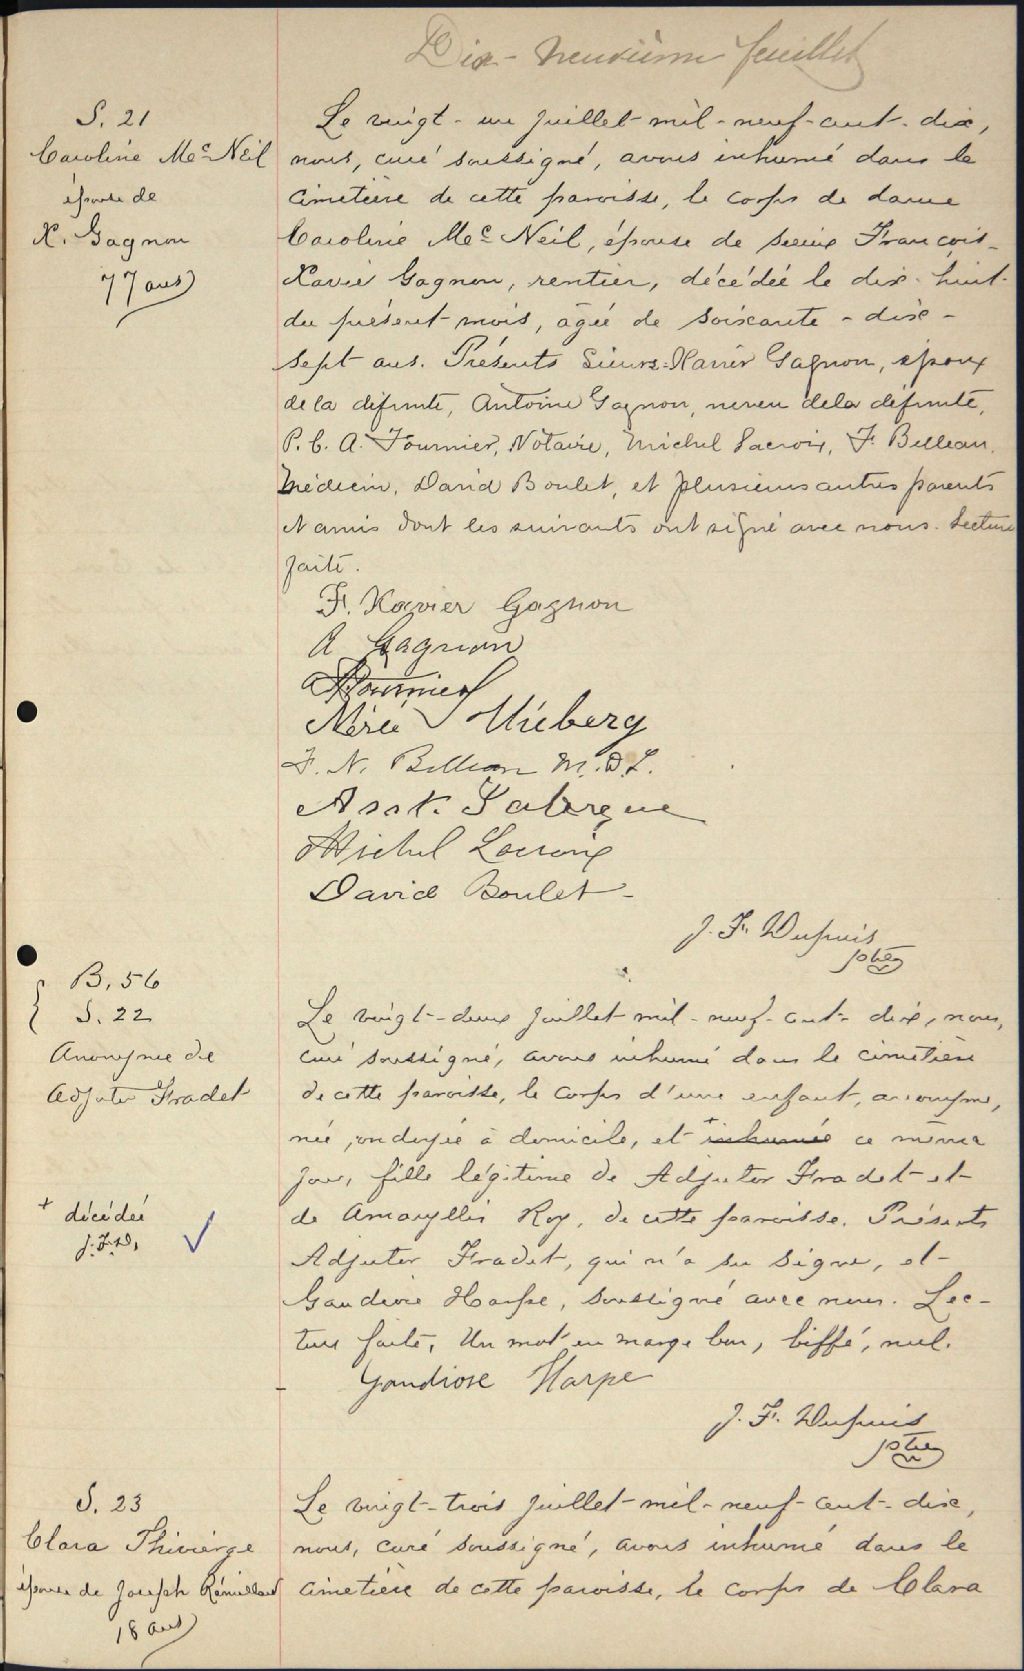 Dix-neuvième feuillet
S. 21
Caroline Mc Neil
épouse de
X. Gagnon
77 ans
Le vingt-un juillet mil-neuf-cent-dix,
nous, curé soussigné, avons inhumé dans le
cimetière de cette paroisse, le corps de dame
Caroline Mc Neil, épouse de sieur François-
Xavier Gagnon, rentier, décédée le dix-huit
du présent mois, âgée de soixante-dix-
sept ans. Présents Sieurs Xavier Gagnon, époux
de la défunte, Antoine Gagnon, neveu de la défunte,
P. C. A. Fournier, Notaire, Michel Lacroix, F. Belleau
Médecin, David Boulet, et plusieurs autres parents
et amis dont les suivants ont signé avec nous. Lecture
faite.
F. Xavier Gagnon
A Gagnon
Fournier
F. N. Belleau M.D.L.
Michel Lacroix
David Boulet
J. F. Dupuis
ptre
B. 56
S. 22
Anonyme de
Adjutor Fradet
Le vingt-deux juillet mil-neuf-cent-dix, nous,
curé soussigné, avons inhumé dans le cimetière
de cette paroisse, le corps d'une enfant, anonyme,
née, ondoyée à domicile, et + inhumée ce même
jour, fille légitime de Adjutor Fradet et
de Amaryllis Roy, de cette paroisse. Présents
Adjutor Fradet, qui n'a su signer, et
Gaudiose Harpe, soussigné avec nous. Lec-
ture faite. Un mot en marge bon, biffé, nul.
+ décédée
J.F.D.
Gaudiose Harpe
J. F. Dupuis
ptre
S. 23
Clara Thivierge
épouse de Joseph Rémillard
18 ans
Le vingt-trois juillet mil-neuf-cent-dix,
nous, curé soussigné, avons inhumé dans le
cimetière de cette paroisse, le corps de Clara